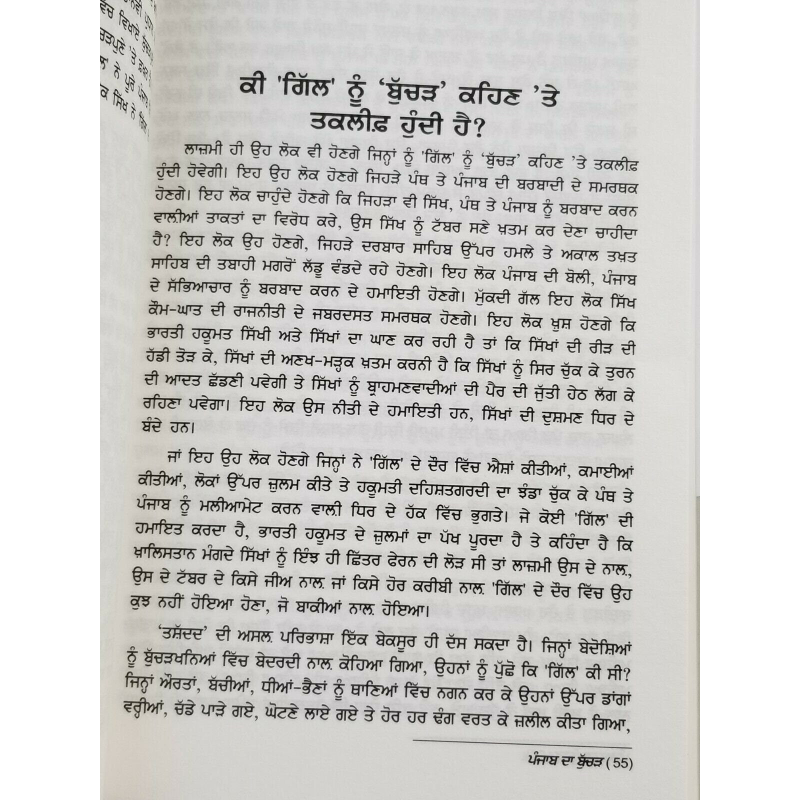 ਕੀ 'ਗਿੱਲ' ਨੂੰ ‘ਬੁੱਚੜ’ ਕਹਿਣ ’ਤੇ
ਤਕਲੀਫ਼ ਹੁੰਦੀ ਹੈ?
ਲਾਜ਼ਮੀ ਹੀ ਉਹ ਲੋਕ ਵੀ ਹੋਣਗੇ ਜਿਨ੍ਹਾਂ ਨੂੰ 'ਗਿੱਲ' ਨੂੰ ‘ਬੁੱਚੜ’ ਕਹਿਣ ’ਤੇ ਤਕਲੀਫ਼
ਹੁੰਦੀ ਹੋਵੇਗੀ। ਇਹ ਉਹ ਲੋਕ ਹੋਣਗੇ ਜਿਹੜੇ ਪੰਥ ਤੇ ਪੰਜਾਬ ਦੀ ਬਰਬਾਦੀ ਦੇ ਸਮਰਥਕ
ਹੋਣਗੇ। ਇਹ ਲੋਕ ਚਾਹੁੰਦੇ ਹੋਣਗੇ ਕਿ ਜਿਹੜਾ ਵੀ ਸਿੱਖ, ਪੰਥ ਤੇ ਪੰਜਾਬ ਨੂੰ ਬਰਬਾਦ ਕਰਨ
ਵਾਲ਼ੀਆਂ ਤਾਕਤਾਂ ਦਾ ਵਿਰੋਧ ਕਰੇ, ਉਸ ਸਿੱਖ ਨੂੰ ਟੱਬਰ ਸਣੇ ਖ਼ਤਮ ਕਰ ਦੇਣਾ ਚਾਹੀਦਾ
ਹੈ? ਇਹ ਲੋਕ ਉਹ ਹੋਣਗੇ, ਜਿਹੜੇ ਦਰਬਾਰ ਸਾਹਿਬ ਉੱਪਰ ਹਮਲੇ ਤੇ ਅਕਾਲ ਤਖ਼ਤ
ਸਾਹਿਬ ਦੀ ਤਬਾਹੀ ਮਗਰੋਂ ਲੱਡੂ ਵੰਡਦੇ ਰਹੇ ਹੋਣਗੇ। ਇਹ ਲੋਕ ਪੰਜਾਬ ਦੀ ਬੋਲੀ, ਪੰਜਾਬ
ਦੇ ਸੱਭਿਆਚਾਰ ਨੂੰ ਬਰਬਾਦ ਕਰਨ ਦੇ ਹਮਾਇਤੀ ਹੋਣਗੇ। ਮੁੱਕਦੀ ਗੱਲ ਇਹ ਲੋਕ ਸਿੱਖ
ਕੌਮ-ਘਾਤ ਦੀ ਰਾਜਨੀਤੀ ਦੇ ਜਬਰਦਸਤ ਸਮਰਥਕ ਹੋਣਗੇ। ਇਹ ਲੋਕ ਖ਼ੁਸ਼ ਹੋਣਗੇ ਕਿ
ਭਾਰਤੀ ਹਕੂਮਤ ਸਿੱਖੀ ਅਤੇ ਸਿੱਖਾਂ ਦਾ ਘਾਣ ਕਰ ਰਹੀ ਹੈ ਤਾਂ ਕਿ ਸਿੱਖਾਂ ਦੀ ਰੀੜ ਦੀ
ਹੱਡੀ ਤੋੜ ਕੇ, ਸਿੱਖਾਂ ਦੀ ਅਣਖ-ਮੜ੍ਹਕ ਖ਼ਤਮ ਕਰਨੀ ਹੈ ਕਿ ਸਿੱਖਾਂ ਨੂੰ ਸਿਰ ਚੁੱਕ ਕੇ ਤੁਰਨ
ਦੀ ਆਦਤ ਛੱਡਣੀ ਪਵੇਗੀ ਤੇ ਸਿੱਖਾਂ ਨੂੰ ਬ੍ਰਾਹਮਣਵਾਦੀਆਂ ਦੀ ਪੈਰ ਦੀ ਜੁੱਤੀ ਹੇਠ ਲੱਗ ਕੇ
ਰਹਿਣਾ ਪਵੇਗਾ। ਇਹ ਲੋਕ ਉਸ ਨੀਤੀ ਦੇ ਹਮਾਇਤੀ ਹਨ, ਸਿੱਖਾਂ ਦੀ ਦੁਸ਼ਮਣ ਧਿਰ ਦੇ
ਬੰਦੇ ਹਨ।
ਜਾਂ ਇਹ ਉਹ ਲੋਕ ਹੋਣਗੇ ਜਿਨ੍ਹਾਂ ਨੇ 'ਗਿੱਲ' ਦੇ ਦੌਰ ਵਿੱਚ ਐਸ਼ਾਂ ਕੀਤੀਆਂ, ਕਮਾਈਆਂ
ਕੀਤੀਆਂ, ਲੋਕਾਂ ਉੱਪਰ ਜ਼ੁਲਮ ਕੀਤੇ ਤੇ ਹਕੂਮਤੀ ਦਹਿਸ਼ਤਗਰਦੀ ਦਾ ਝੰਡਾ ਚੁੱਕ ਕੇ ਪੰਥ ਤੇ
ਪੰਜਾਬ ਨੂੰ ਮਲੀਆਮੇਟ ਕਰਨ ਵਾਲੀ ਧਿਰ ਦੇ ਹੱਕ ਵਿੱਚ ਭੁਗਤੇ। ਜੇ ਕੋਈ 'ਗਿੱਲ' ਦੀ
ਹਮਾਇਤ ਕਰਦਾ ਹੈ, ਭਾਰਤੀ ਹਕੂਮਤ ਦੇ ਜ਼ੁਲਮਾਂ ਦਾ ਪੱਖ ਪੂਰਦਾ ਹੈ ਤੇ ਕਹਿੰਦਾ ਹੈ ਕਿ
ਖ਼ਾਲਿਸਤਾਨ ਮੰਗਦੇ ਸਿੱਖਾਂ ਨੂੰ ਇੰਝ ਹੀ ਛਿੱਤਰ ਫੇਰਨ ਦੀ ਲੋੜ ਸੀ ਤਾਂ ਲਾਜ਼ਮੀ ਉਸ ਦੇ ਨਾਲ਼,
ਉਸ ਦੇ ਟੱਬਰ ਦੇ ਕਿਸੇ ਜੀਅ ਨਾਲ਼ ਜਾਂ ਕਿਸੇ ਹੋਰ ਕਰੀਬੀ ਨਾਲ਼ 'ਗਿੱਲ' ਦੇ ਦੌਰ ਵਿੱਚ ਉਹ
ਕੁਝ ਨਹੀਂ ਹੋਇਆ ਹੋਣਾ, ਜੋ ਬਾਕੀਆਂ ਨਾਲ਼ ਹੋਇਆ।
'ਤਸ਼ੱਦਦ' ਦੀ ਅਸਲ਼ ਪਰਿਭਾਸ਼ਾ ਇੱਕ ਬੇਕਸੂਰ ਹੀ ਦੱਸ ਸਕਦਾ ਹੈ। ਜਿਨ੍ਹਾਂ ਬੇਦੋਸ਼ਿਆਂ
ਨੂੰ ਬੁੱਚੜਖਾਨਿਆਂ ਵਿੱਚ ਬੇਦਰਦੀ ਨਾਲ਼ ਕੋਹਿਆ ਗਿਆ, ਉਹਨਾਂ ਨੂੰ ਪੁੱਛੋ ਕਿ 'ਗਿੱਲ' ਕੀ ਸੀ?
ਜਿਨ੍ਹਾਂ ਔਰਤਾਂ, ਬੱਚੀਆਂ, ਧੀਆਂ-ਭੈਣਾਂ ਨੂੰ ਥਾਣਿਆਂ ਵਿੱਚ ਨਗਨ ਕਰ ਕੇ ਉਹਨਾਂ ਉੱਪਰ ਡਾਂਗਾਂ
ਵਰ੍ਹੀਆਂ, ਚੱਡੇ ਪਾੜੇ ਗਏ, ਘੋਟਣੇ ਲਾਏ ਗਏ ਤੇ ਹੋਰ ਹਰ ਢੰਗ ਵਰਤ ਕੇ ਜ਼ਲੀਲ ਕੀਤਾ ਗਿਆ,
ਪੰਜਾਬ ਦਾ ਬੁੱਚੜ (55)